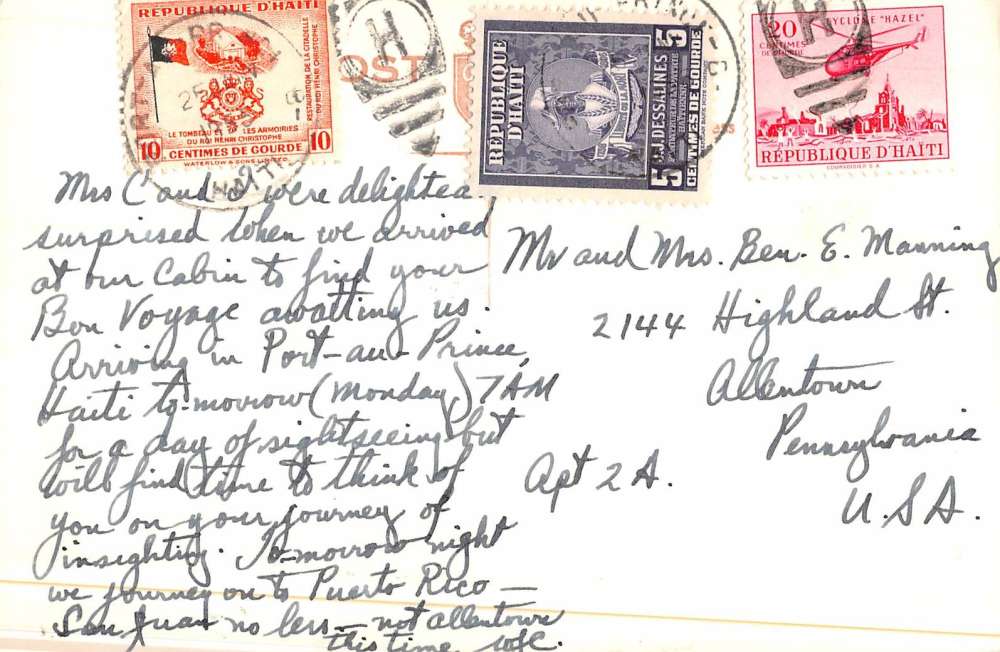 RÉPUBLIQUE D'HAÏTI
RESTAURATION DE LA CITADELLE
DU ROI HENRI CHRISTOPHE
LE TOMBEAU ET LES ARMOIRIES
DU ROI HENRI CHRISTOPHE
10 CENTIMES DE GOURDE 10
WATERLOW & SONS LIMITED
POST
H
RÉPUBLIQUE
D'HAÏTI
J.J. DESSALINES
5 CENTIMES DE GOURDE 5
H
CYCLONE "HAZEL"
20
CENTIMES
DE GOURDE
RÉPUBLIQUE D'HAÏTI
COURVOISIER S.A.
Mrs C and I were delighted
surprised when we arrived
at our cabin to find your
Bon Voyage awaiting us.
Arriving in Port-au-Prince,
Haiti to-morrow (Monday) 7 AM
for a day of sightseeing but
will find time to think of
you on your journey of
insighting. To-morrow night
we journey on to Puerto Rico —
San Juan no less — not Allentown
this time. WfC.
Mr and Mrs. Ben. E. Manning
2144 Highland St.
Allentown
Pennsylvania
Apt 2 A.
U.S.A.